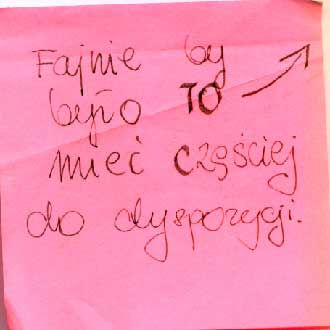 Fajnie by
było TO
mieć częściej
do dyspozycji.